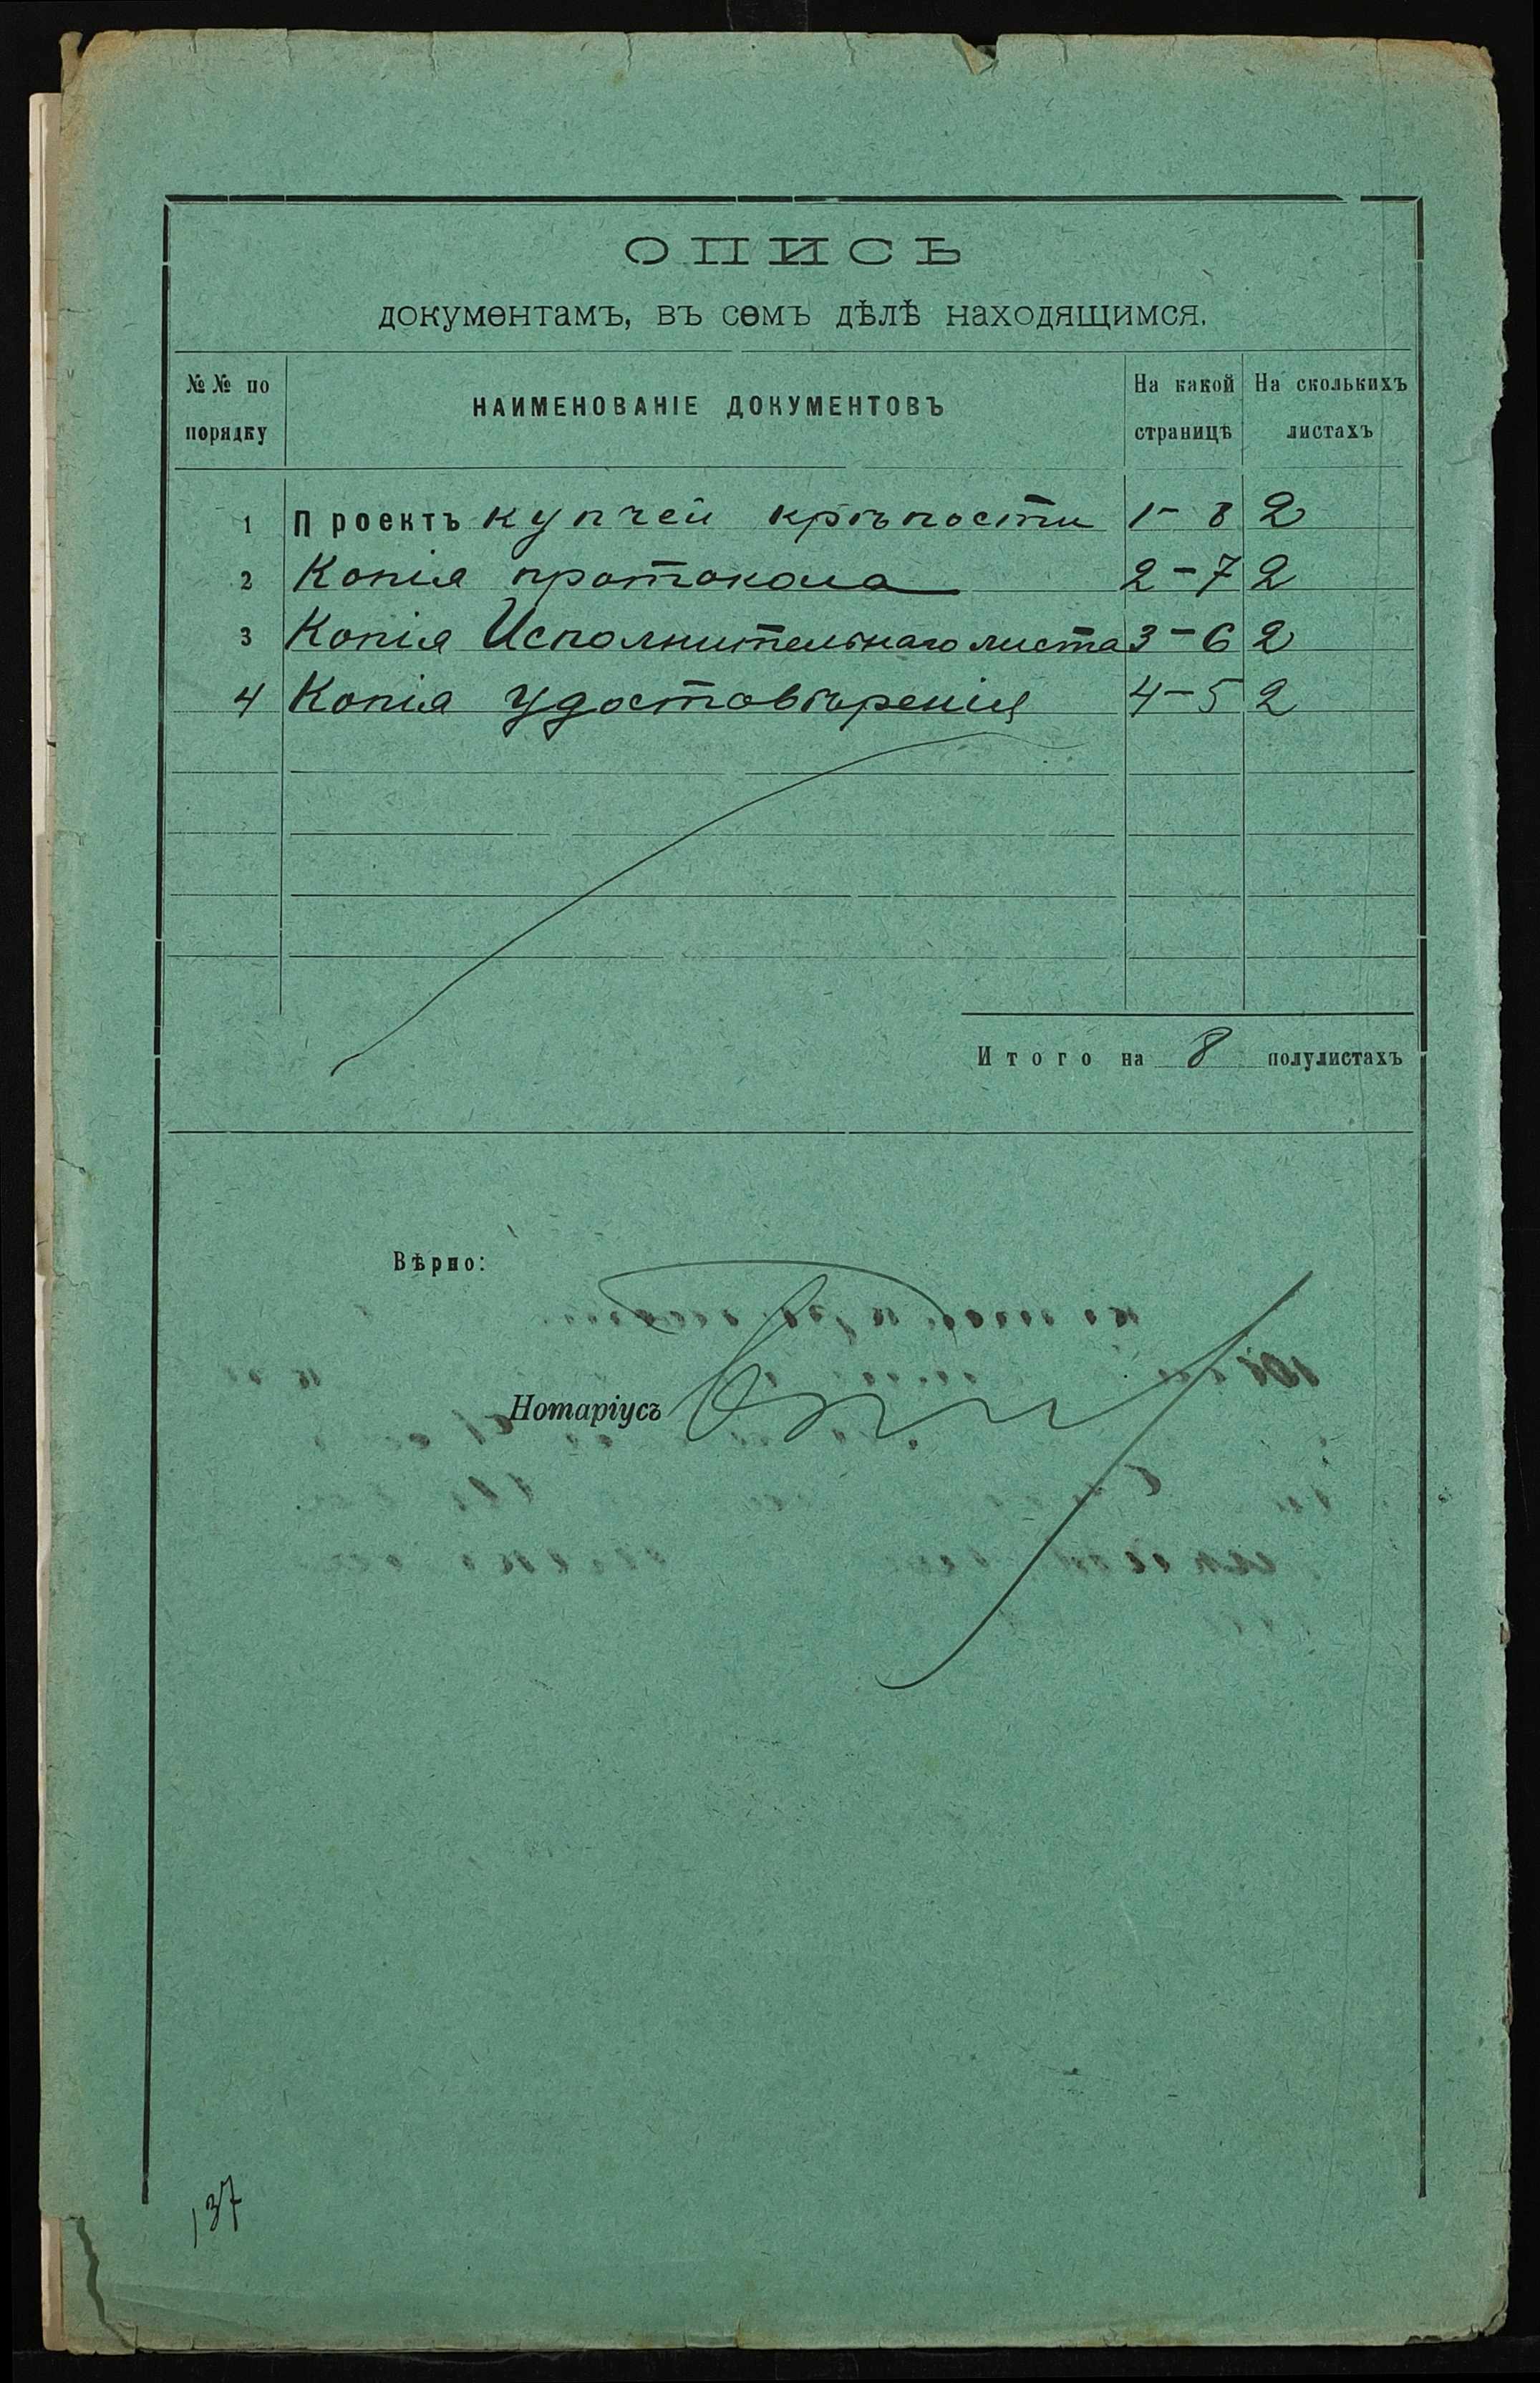 ОПИСЬ
документамъ, въ семъ дѣлѣ находящимся.
№№ по порядку
НАИМЕНОВАНІЕ ДОКУМЕНТОВЪ
На какой страницѣ
На сколькихъ листахъ
1 Проектъ купчей крѣпости 1-8 2
2 Копія протокола 2-7 2
3 Копія Исполнительнаго листа 3-6 2
4 Копія удостовѣренія 4-5 2
Итого на 8 полулистахъ
Вѣрно:
Нотаріусъ
137